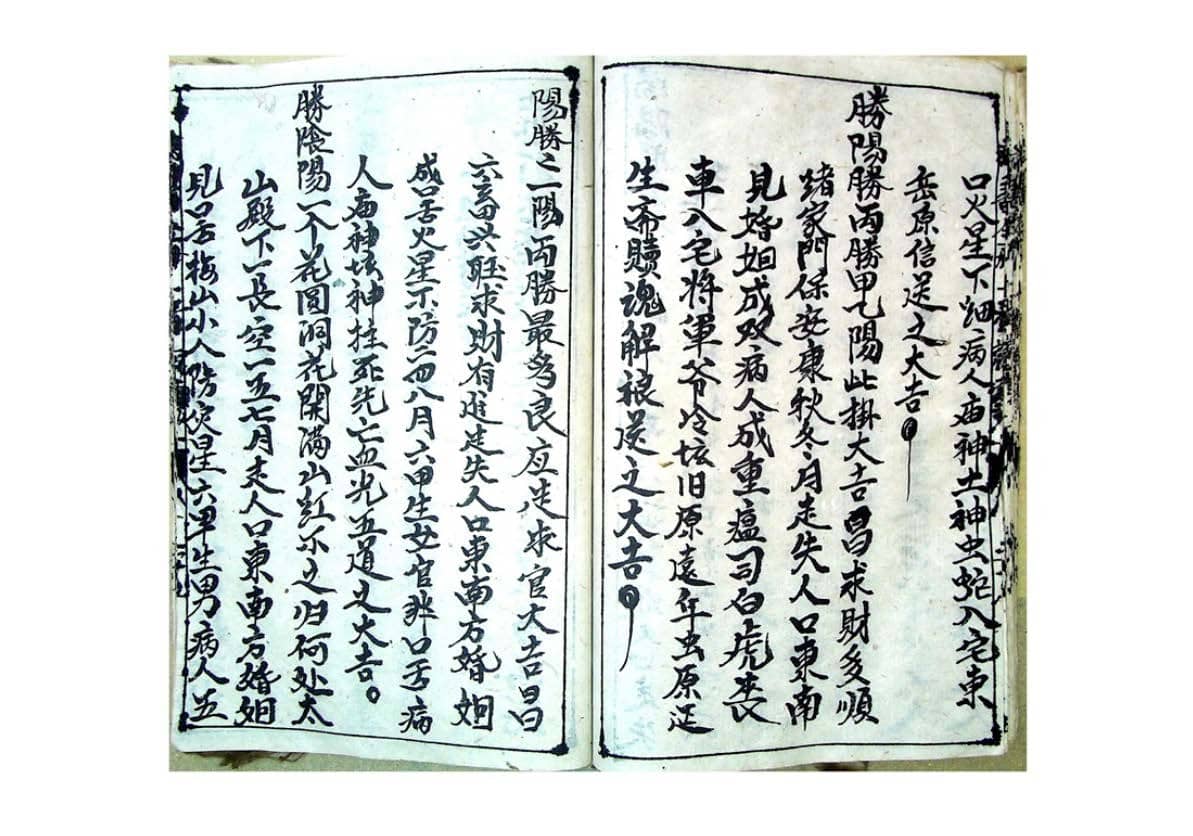 口火星下 病人庙神土神虫蛇入宅東
岳原信送之大吉
勝陽勝丙勝甲乙陽此掛大吉昌求財多順
緒家門保安康秋冬月走失人口東南
見婚姻成双病人成重瘟司白虎丧
車入宅将軍爷冷坛旧原遠年虫原足
生斋贖魂解 送之大吉
陽勝之一陽丙勝最為良 求官大吉昌
六畜兴旺求財有 走失人口東南方婚姻
成口舌火星不防二四八月六甲生女官非口舌病
人庙神坛神 死先亡血光五道之大吉
勝陰陽一个花园洞花開满山紅不之归何处太
山殿下一長空一五七月走人口東南方婚姻
見口舌梅山小人防 星六甲生男病人五